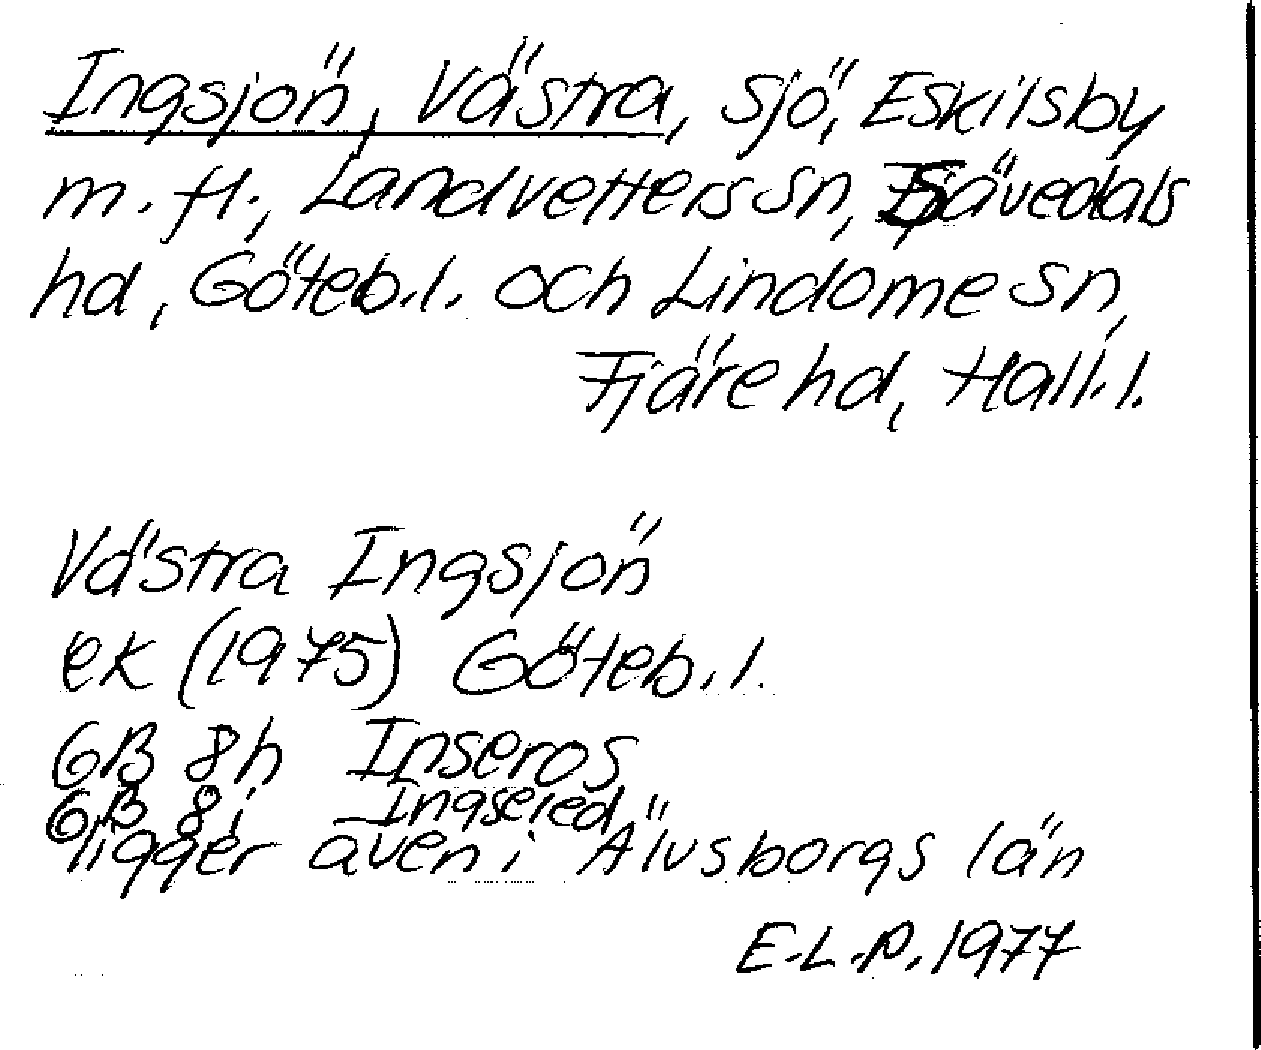 Ingsjön, Västra, sjö, Eskilsby
m. fl., Landvetters sn, Sävedals
hd, Göteb.l. och Lindome sn,
Fjäre hd, Hall.l.
Västra Ingsjön
ek (1975) Göteb.l.
6B 8h Inseros
6B 8i Ingsered
ligger även i Älvsborgs län
E.L.P. 1977